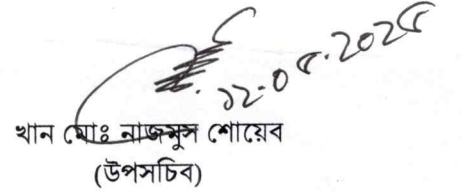 ১২.০৫.২০২৫
খান মোঃ নাজমুস শোয়েব
(উপসচিব)